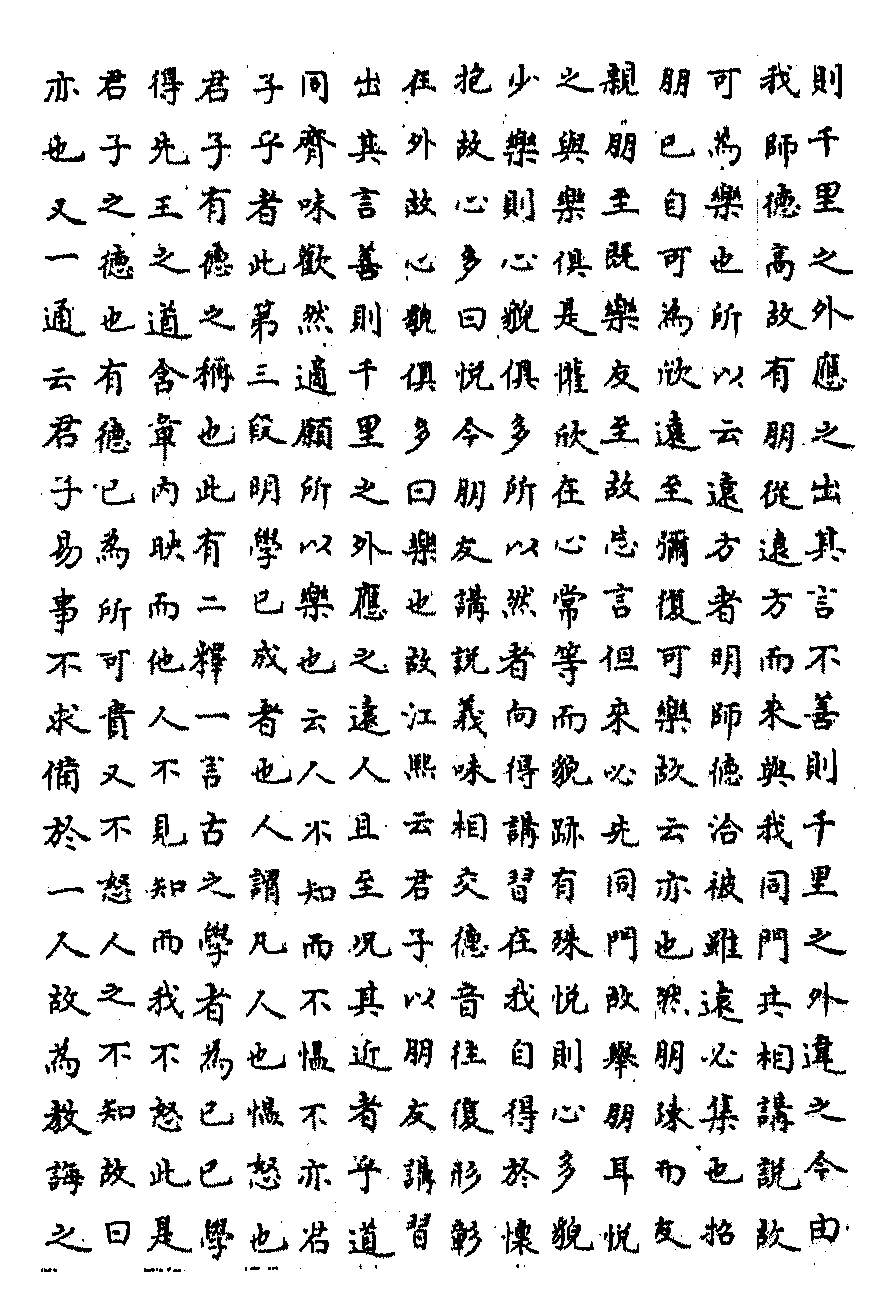 則千里之外應之出其言不善則千里之外違之今由
我師德高故有朋從遠方而来與我同門共相講説故
可為樂也所以云遠方者明師德洽被雖遠必集也招
朋已自可為欣遠至弥復可樂故云亦也然朋疎而友
親朋至既樂友至故忘言但來必先同門故舉朋耳悦
之與樂俱是懽欣在心常等而貌跡有殊悦則心多貌
少樂則心貌俱多所以然者向得講習在我自得於懐
抱故心多曰悦今朋友講説義味相交德音往復形彰
在外故心貌俱多曰樂也故江熈云君子以朋友講習
出其言善則千里之外應之遠人且至况其近者乎道
同齊味歡然適願所以樂也云人不知而不愠不亦君
子乎者此第三段明學已成者也人謂凡人也愠怒也
君子有德之稱也此有二釋一言古之學者為己已學
得先王之道含章内映而他人不見知而我不怒此是
君子之德也有德已為所可貴又不怒人之不知故曰
亦也又一通云君子易事不求備於一人故為教誨之